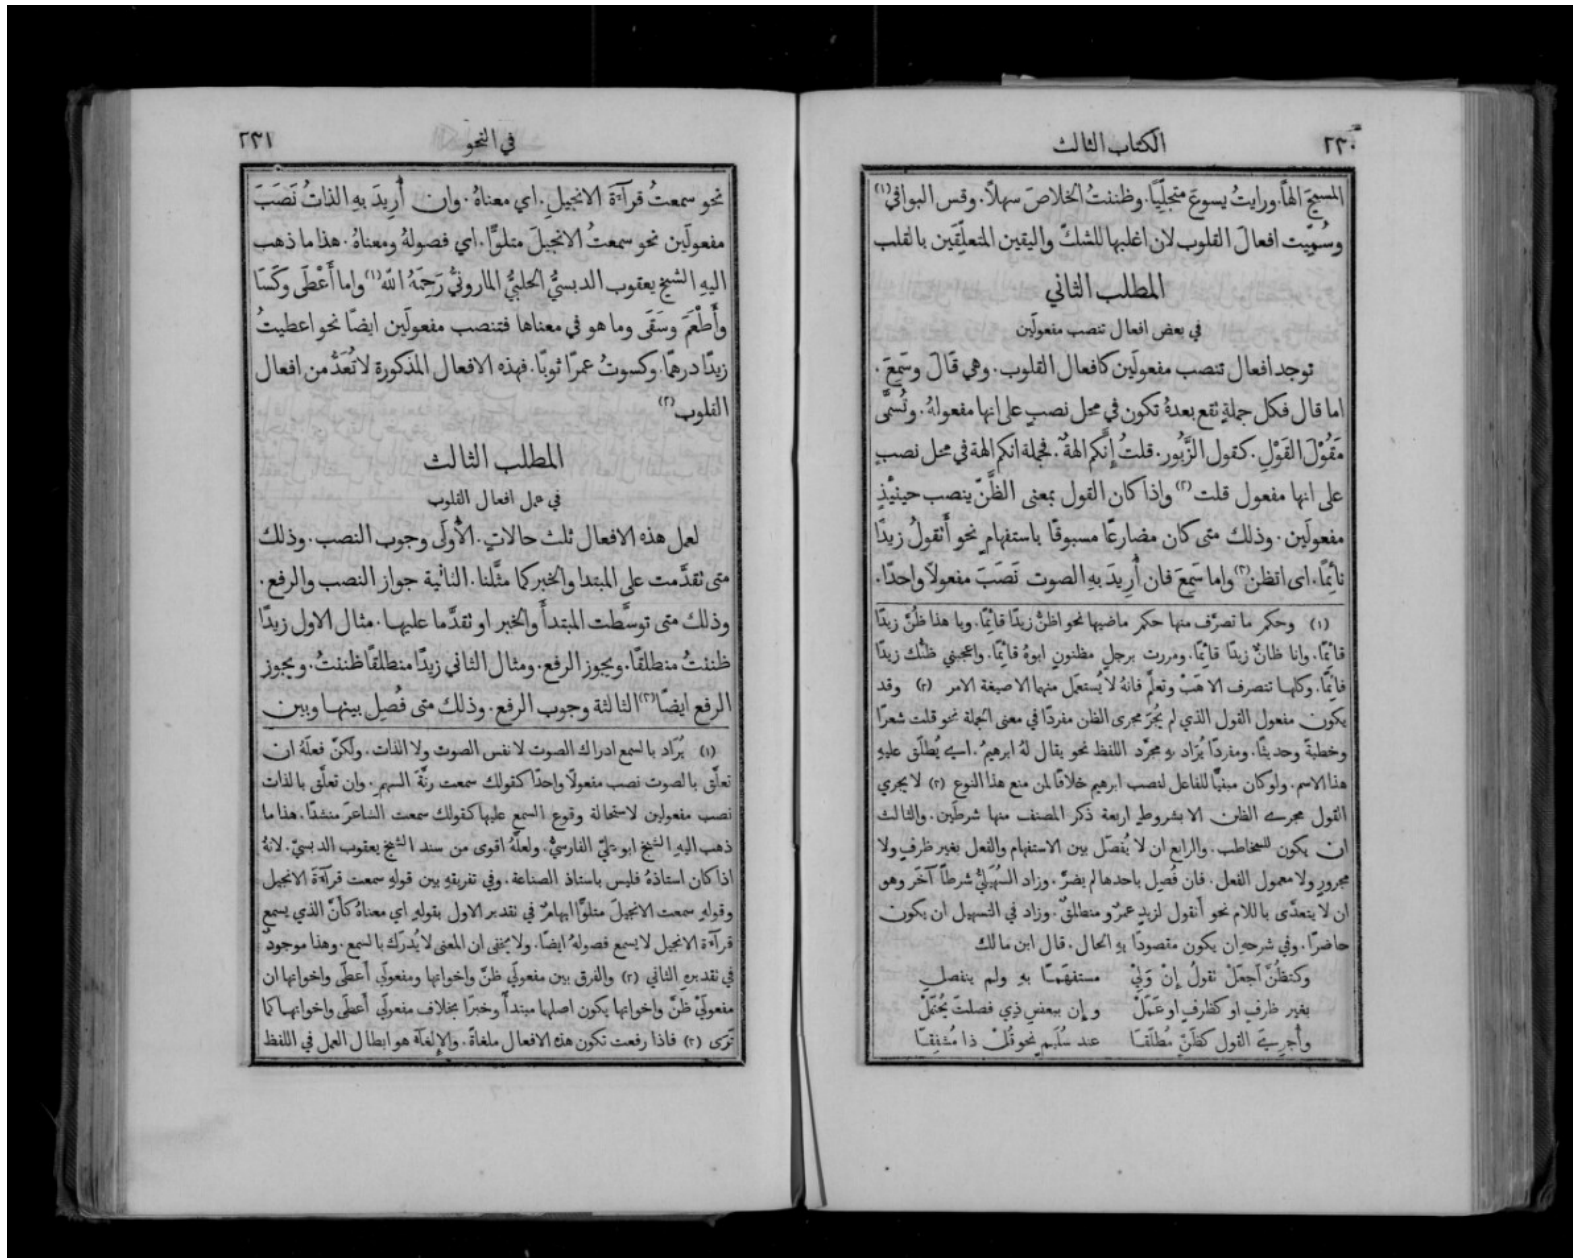 ٢٣٠
الكتاب الثالث
المسيحَ الهًا. ورايتُ يسوعَ متجلّيًا. وظننتُ الخلاصَ سهلًا. وقس البواقي(١)
وسُمِّيت افعالَ القلوب لان اغلبها للشكّ واليقين المتعلّقَين بالقلب
المطلب الثاني
في بعض افعال تنصب مفعولَين
توجد افعال تنصب مفعولَين كافعال القلوب. وهي قَالَ وسَمِعَ.
اما قال فكل جملةٍ تقع بعدهُ تكون في محل نصبٍ على انها مفعولهُ. وتُسمَّى
مَقُوْلَ القَوْلِ. كقول الزَّبُور. قلتُ إِنَّكم الهةٌ. فجملة انكم الهة في محل نصبٍ
على انها مفعول قلت(٢) واذا كان القول بمعنى الظَّنّ ينصب حينئِذٍ
مفعولَين. وذلك متى كان مضارعًا مسبوقًا باستفهامٍ نحو أَتقولُ زيدًا
نائِمًا. اى اتظن(٣) واما سَمِعَ فان أُرِيدَ بهِ الصوت نَصَبَ مفعولًا واحدًا.
(١) وحكم ما تصرَّف منها حكم ماضيها نحو اظنُّ زيدًا قائِمًا. ويا هذا ظُنَّ زيدًا
قائِمًا. وانا ظانٌّ زيدًا قائِمًا. ومررت برجلٍ مظنونٍ ابوهُ قائِمًا. واعجبني ظنُّك زيدًا
قائِمًا. وكلها تتصرف الا هَبْ وتعلَّمْ فانهُ لا يُستعمَل منهما الا صيغة الامر (٢) وقد
يكون مفعول القول الذي لم يُجرَ مجرى الظن مفردًا في معنى الجملة نحو قلت شعرًا
وخطبةً وحديثًا. ومفردًا يُرَاد بهِ مجرَّد اللفظ نحو يقال لهُ ابرهيمُ. اي يُطلَق عليهِ
هذا الاسم. ولو كان مبنيًّا للفاعل لنصب ابرهيم خلافًا لمن منع هذا النوع (٣) لا يجري
القول مجرى الظن الا بشروطٍ اربعة ذكر المصنف منها شرطَين. والثالث
ان يكون للمخاطب. والرابع ان لا يُفصَل بين الاستفهام والفعل بغير ظرفٍ ولا
مجرورٍ ولا معمول الفعل. فان فُصِل باحدها لم يضرّ. وزاد السُّهَيليُّ شرطًا آخَر وهو
ان لا يتعدَّى باللام نحو أتقول لزيدٍ عمرٌو منطلقٌ. وزاد في التسهيل ان يكون
حاضرًا. وفي شرحهِ ان يكون مقصودًا بهِ الحال. قال ابن مالك
وكتظُنُّ اَجعَلْ تقولُ إِنْ وَلِيْ مستفهَمًا بهِ ولم ينفصلِ
بغير ظرفٍ او كظرفٍ او عَمَلْ وإن ببعض ذِي فصلتَ يُحْتَمَلْ
وأُجرِيَ القول كظَنٍّ مُطلَقا عند سُلَيمٍ نحو قُلْ ذا مُشفِقا
٢٣١
في النحو
نحو سمعتُ قرآءَةَ الانجيلِ. اي معناهُ. وان أُرِيدَ بهِ الذاتُ نَصَبَ
مفعولَين نحو سمعتُ الانجيلَ متلوًّا. اي فصولهُ ومعناهُ. هذا ما ذهب
اليهِ الشيخ يعقوب الدبسيُّ الحلبيُّ المارونيُّ رَحِمَهُ اللّه(١) واما أَعْطَى وكَسَا
وأَطْعَمَ وسَقَى وما هو في معناها فتنصب مفعولَين ايضًا نحو اعطيتُ
زيدًا درهمًا. وكسوتُ عمرًا ثوبًا. فهذه الافعال المذكورة لا تُعَدُّ من افعال
القلوب(٢)
المطلب الثالث
في عمل افعال القلوب
لعمل هذه الافعال ثلث حالاتٍ. الأُولَى وجوب النصب. وذلك
متى تقدَّمت على المبتدا والخبر كما مثَّلنا. الثانية جواز النصب والرفع.
وذلك متى توسَّطت المبتدأَ والخبر او تقدَّما عليهـا. مثال الاول زيدًا
ظننتُ منطلقًا. ويجوز الرفع. ومثال الثاني زيدًا منطلقًا ظننتُ. ويجوز
الرفع ايضًا(٣) الثالثة وجوب الرفع. وذلك متى فُصِل بينهـا وبين
(١) يُرَاد بالسمع ادراك الصوت لا نفس الصوت ولا الذات. ولكنّ فعلهُ ان
تعلَّق بالصوت نصب مفعولًا واحدًا كقولك سمعت رنَّةَ السهمِ. وان تعلَّق بالذات
نصب مفعولين لاستحالة وقوع السمع عليها كقولك سمعت الشاعرَ منشدًا. هذا ما
ذهب اليهِ الشيخ ابو عليّ الفارسيُّ. ولعلَّهُ اقوى من سند الشيخ يعقوب الدبسيّ. لانهُ
اذا كان استاذهُ فليس باستاذ الصناعة. وفي تفريقهِ بين قولهِ سمعت قرآءَةَ الانجيل
وقولهِ سمعت الانجيلَ متلوًّا ابهامٌ في تقدير الاول بقولهِ اي معناهُ كأنَّ الذي يسمع
قرآءَة الانجيل لا يسمع فصولهُ ايضًا. ولا يخفى ان المعنى لا يُدرَك بالسمع. وهذا موجودٌ
في تقديرهِ الثاني (٢) والفرق بين مفعولَي ظنَّ واخواتها ومفعولَي أعطَى واخواتها ان
مفعولَيْ ظنَّ واخواتها يكون اصلها مبتدأً وخبرًا بخلاف مفعولَي أعطَى واخواتهـا كما
تَرَى (٣) فاذا رفعت تكون هذه الافعال ملغاةً. والإلغآء هو ابطال العمل في اللفظ